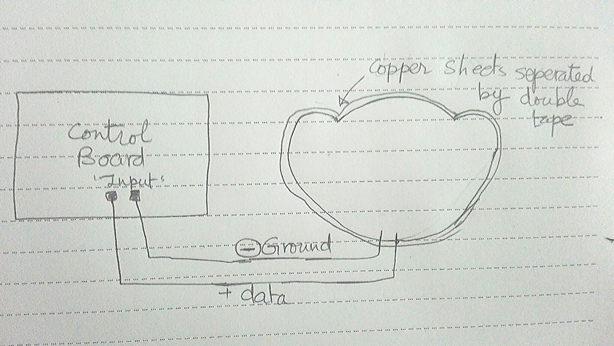 copper sheets seperated
by double
tape
Control
Board
'Input'
- Ground
+ data